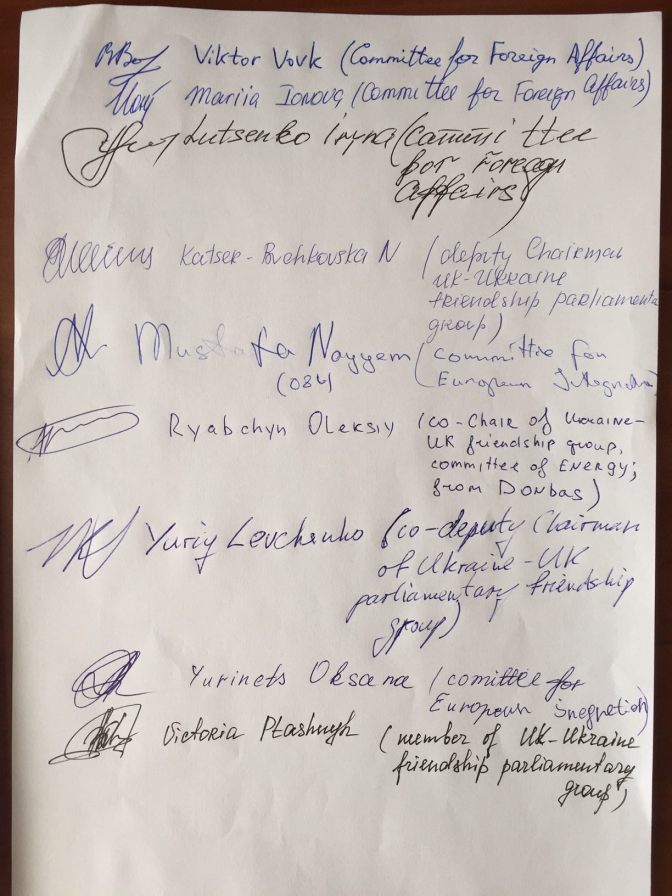 Viktor Vovk (Committee for Foreign Affairs)
Mariia Ionova (Committee for Foreign Affairs)
Lutsenko Iryna (Committee
for Foreign
Affairs)
Katser-Buchkovska N (deputy Chairman
UK-Ukraine
friendship parliamenta
group)
Mustafa Nayyem (committee for
(084) European Integration)
Ryabchyn Oleksiy (co-Chair of Ukraine-
UK friendship group,
committee of ENERGY;
from DONbas)
Yuriy Levchenko (co-deputy Chairman
of Ukraine-UK
parliamentary friendship
group)
Yurinets Oksana (comittee for
European inegration)
Victoria Ptashnyk (member of UK-Ukraine
friendship parliamentary
group)